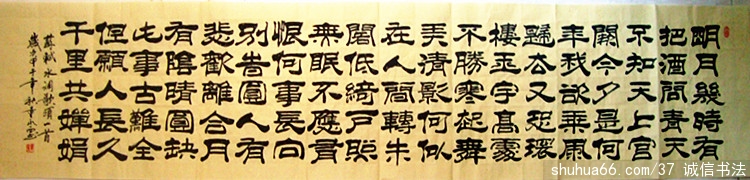 明月幾時有
把酒問青天
不知天上宮
闕今夕是何
年我欲乘風
歸去又恐瓊
樓玉宇高處
不勝寒起舞
弄清影何似
在人間轉朱
閣低綺戶照
無眠不應有
恨何事長向
別旹圓人有
悲歡離合月
有陰晴圓缺
此事古難全
但願人長久
千里共嬋娟
蘇軾水調歌頭一首
甲午年秋
shuhua66.com/37 诚信书法